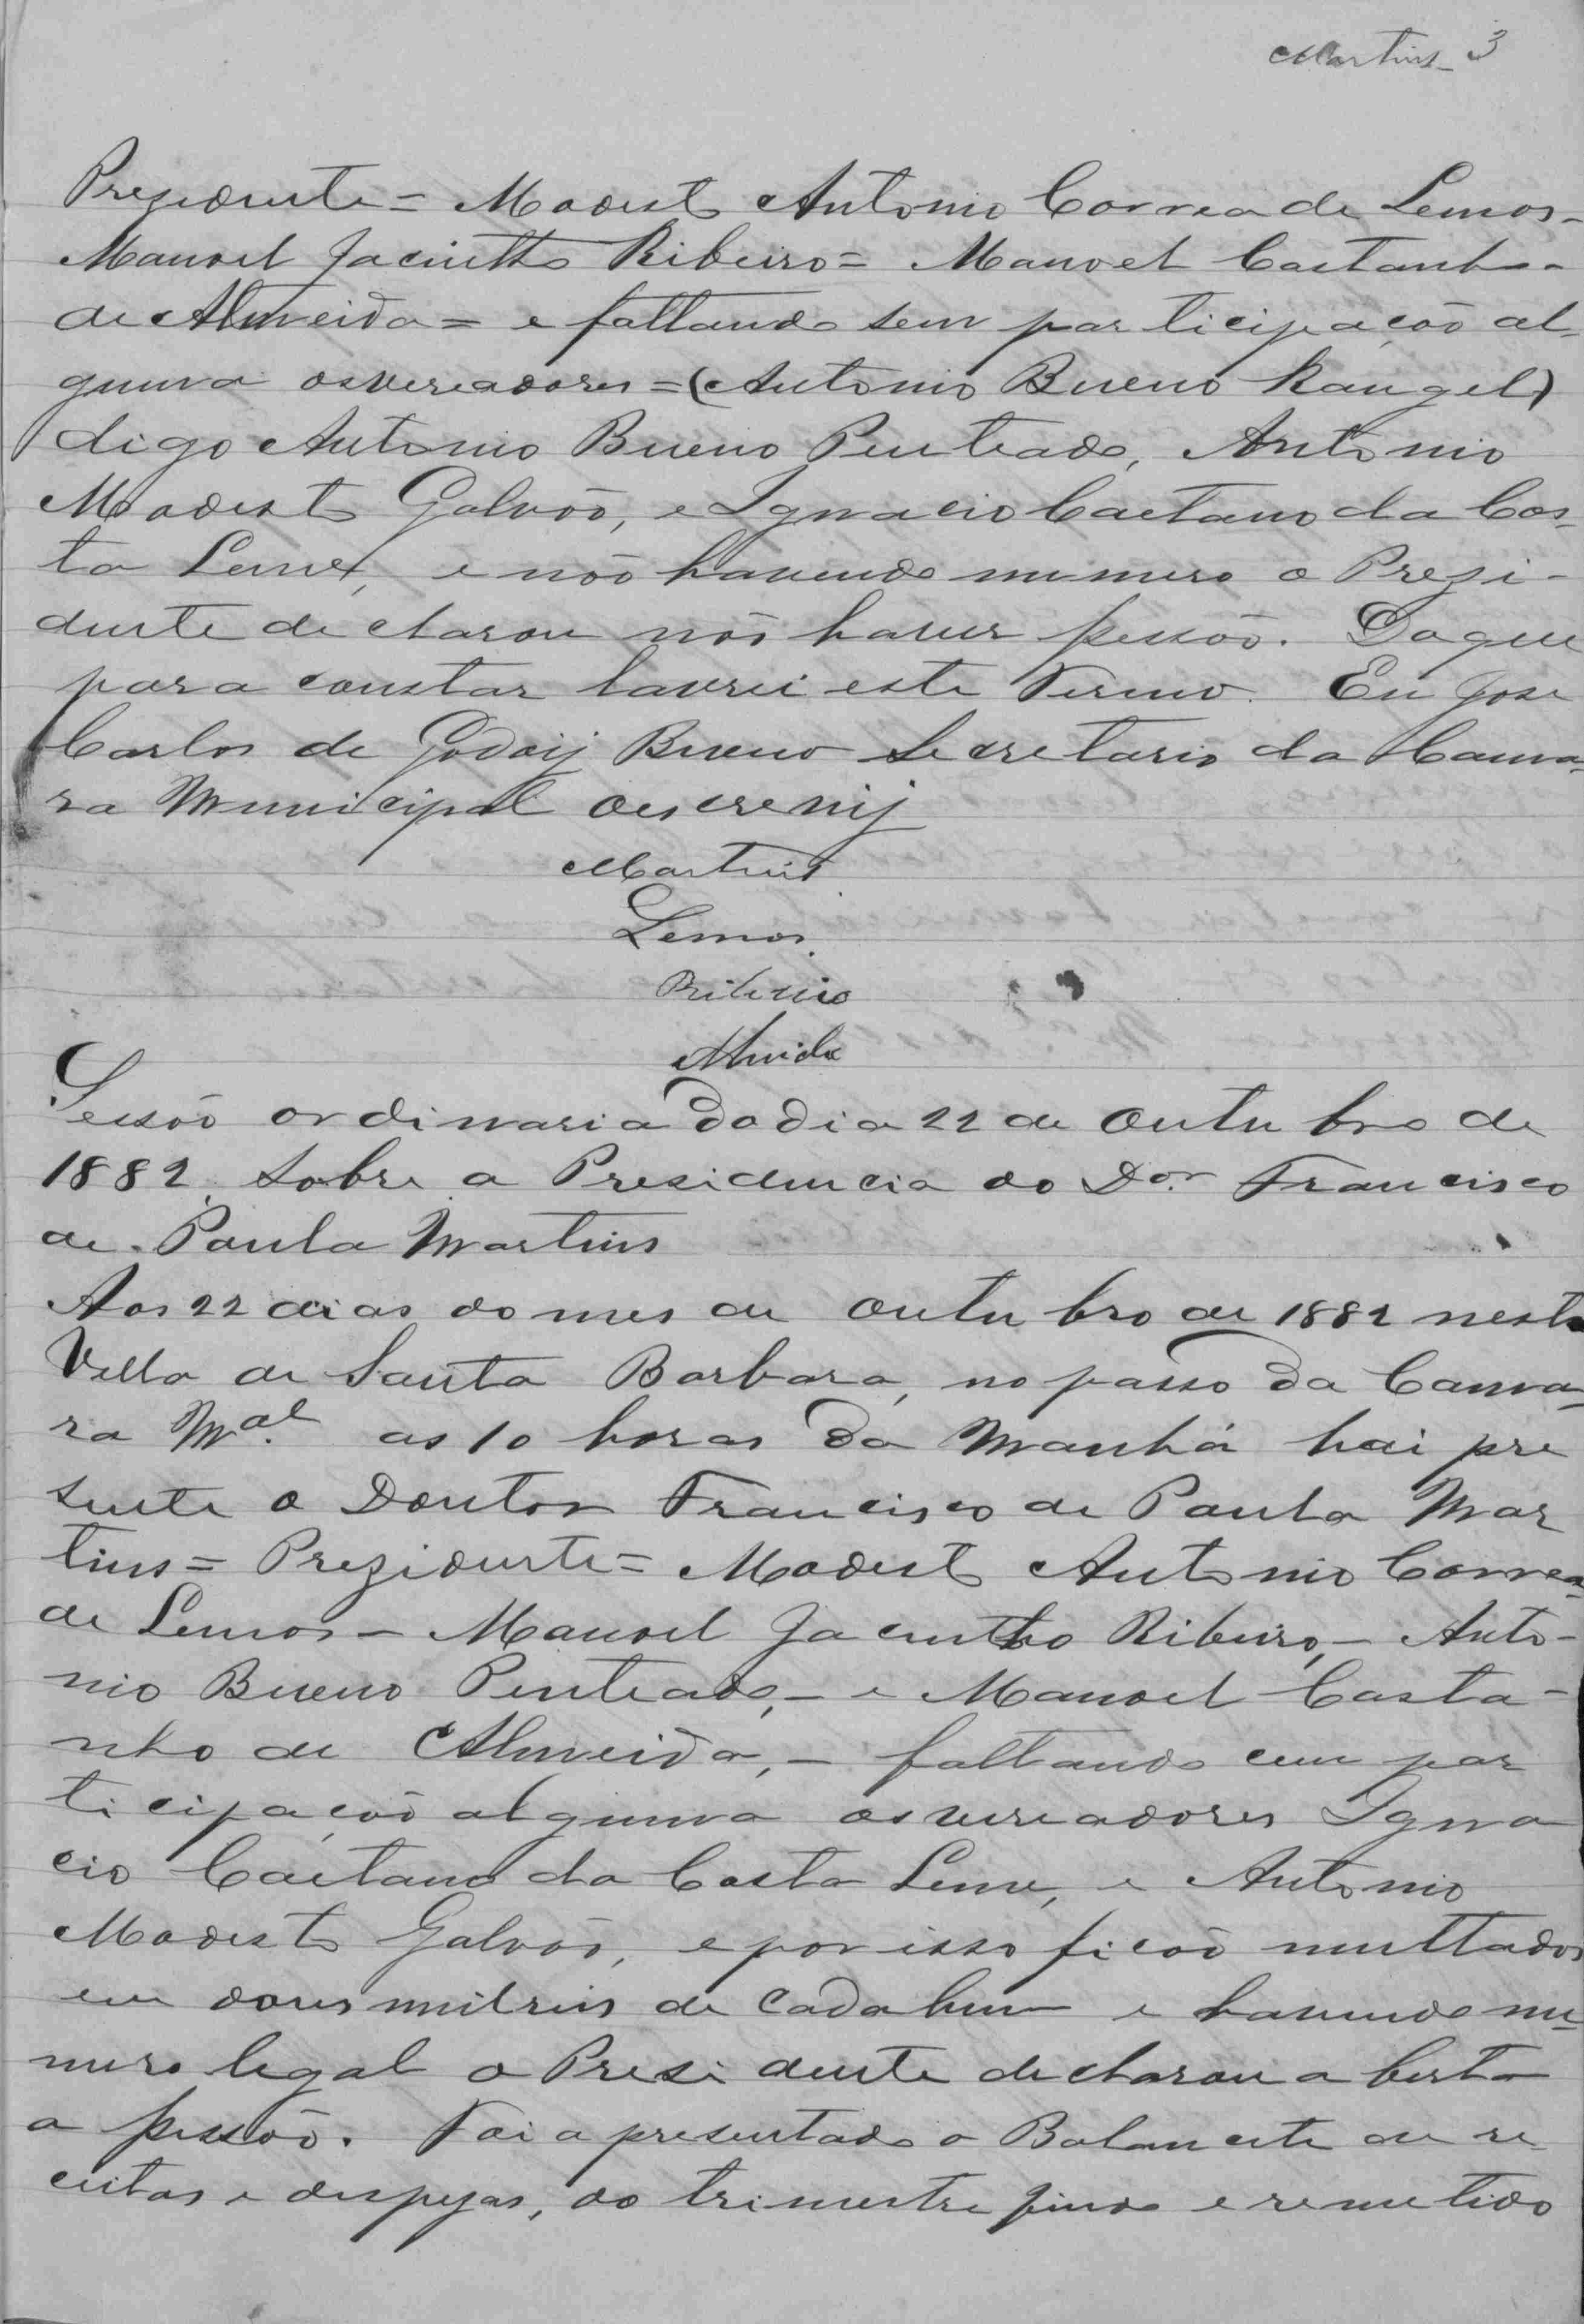 Martins 3
Prezidente = Modesto Antonio Correa de Lemos -
Manoel Jacintho Ribeiro = Manoel Castanho -
de Almeida = e faltando sem participação al-
guma os vereadores = (Antonio Bueno Rangel)
digo Antonio Bueno Penteado, Antonio
Modesto Galvão, e Ignacio Caetano da Cos-
ta Leme, e não havendo numero o Prezi-
dente declarou não haver sessão. Do que
para constar lavrei este Termo. Eu Jose
Carlos de Godoij Bueno Secretario da Cama-
ra Municipal o escrevij
Martins
Lemos
Ribeiro
Almeida
Sessão ordinaria do dia 22 de Outubro de
1882 Sobre a Presidencia do Dor Francisco
de Paula Martins
Aos 22 dias do mes de Outubro de 1882 nesta
Villa de Santa Barbara, no passo da Cama-
ra Mal as 10 horas da Manhã hai pre
sente o Doutor Francisco de Paula Mar
tins = Prezidente = Modesto Antonio Correa
de Lemos - Manoel Jacintho Ribeiro, - Anto-
nio Bueno Penteado, - e Manoel Casta-
nho de Almeida, - faltando cem par
ticipação alguma os vereadores Igna
cio Caetano da Costa Leme, e Antonio
Modesto Galvão, e por isso ficão multados
em doues mil reis de Cada hum e havendo nu-
mero legal o Presidente declarou aberta
a sessão. Foi apresentado o Balancete de re-
ceitas e despezas, do trimestre findo e remetido